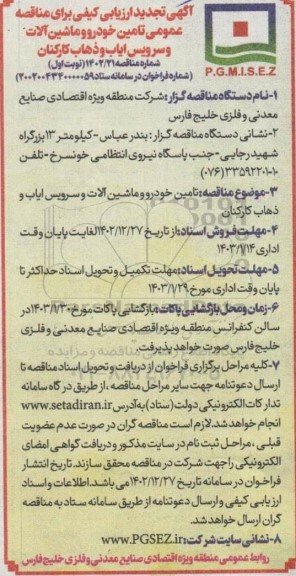 آگهی تجدید ارزیابی کیفی برای مناقصه
عمومی تامین خودرو و ماشین آلات
و سرویس ایاب و ذهاب کارکنان
شماره مناقصه ۱۴۰۲/۲۱ (نوبت اول)
(شماره فراخوان در سامانه ستاد ۲۰۰۲۰۰۴۳۴۰۰۰۰۵۹)
P.G.M.I.S.E.Z
۱-نام دستگاه مناقصه گزار: شرکت منطقه ویژه اقتصادی صنایع
معدنی و فلزی خلیج فارس
۲-نشانی دستگاه مناقصه گزار: بندرعباس-کیلومتر ۱۳ بزرگراه
شهید رجایی-جنب پاسگاه نیروی انتظامی خونسرخ-تلفن
(۰۷۶)۳۳۵۹۲۲۰۱۰
۳-موضوع مناقصه: تامین خودرو و ماشین آلات و سرویس ایاب و
ذهاب کارکنان
۴-مهلت فروش اسناد: از تاریخ ۱۴۰۲/۱۲/۲۷ لغایت پایان وقت
اداری ۱۴۰۳/۱/۱۴
۵-مهلت تحویل اسناد: مهلت تکمیل و تحویل اسناد حداکثر تا
پایان وقت اداری مورخ ۱۴۰۳/۱/۲۹
۶-زمان و محل بازگشایی پاکات: بازگشایی پاکات مورخ ۱۴۰۳/۱/۳۰ در
سالن کنفرانس منطقه ویژه اقتصادی صنایع معدنی و فلزی
خلیج فارس صورت خواهد پذیرفت.
۷-کلیه مراحل برگزاری فراخوان از دریافت و تحویل اسناد مناقصه تا
ارسال دعوتنامه جهت سایر مراحل مناقصه، از طریق درگاه سامانه
تدارکات الکترونیکی دولت (ستاد) به آدرس www.setadiran.ir
انجام خواهد شد. لازم است مناقصه گران در صورت عدم عضویت
قبلی، مراحل ثبت نام در سایت مذکور و دریافت گواهی امضای
الکترونیکی را جهت شرکت در مناقصه محقق سازند. تاریخ انتشار
فراخوان در سامانه تاریخ ۱۴۰۲/۱۲/۲۷ می باشد. اطلاعات و اسناد
ارزیابی کیفی و ارسال دعوتنامه از طریق سامانه ستاد به مناقصه
گران ارسال خواهد شد.
۸-نشانی سایت شرکت: www.PGSEZ.ir
روابط عمومی منطقه ویژه اقتصادی صنایع معدنی و فلزی خلیج فارس